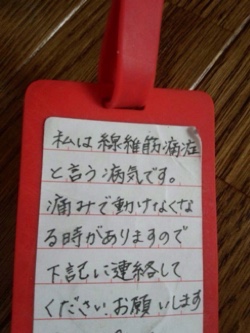 私は線維筋痛症
と言う病気です。
痛みで動けなくな
る時がありますので
下記に連絡して
ください。お願いします